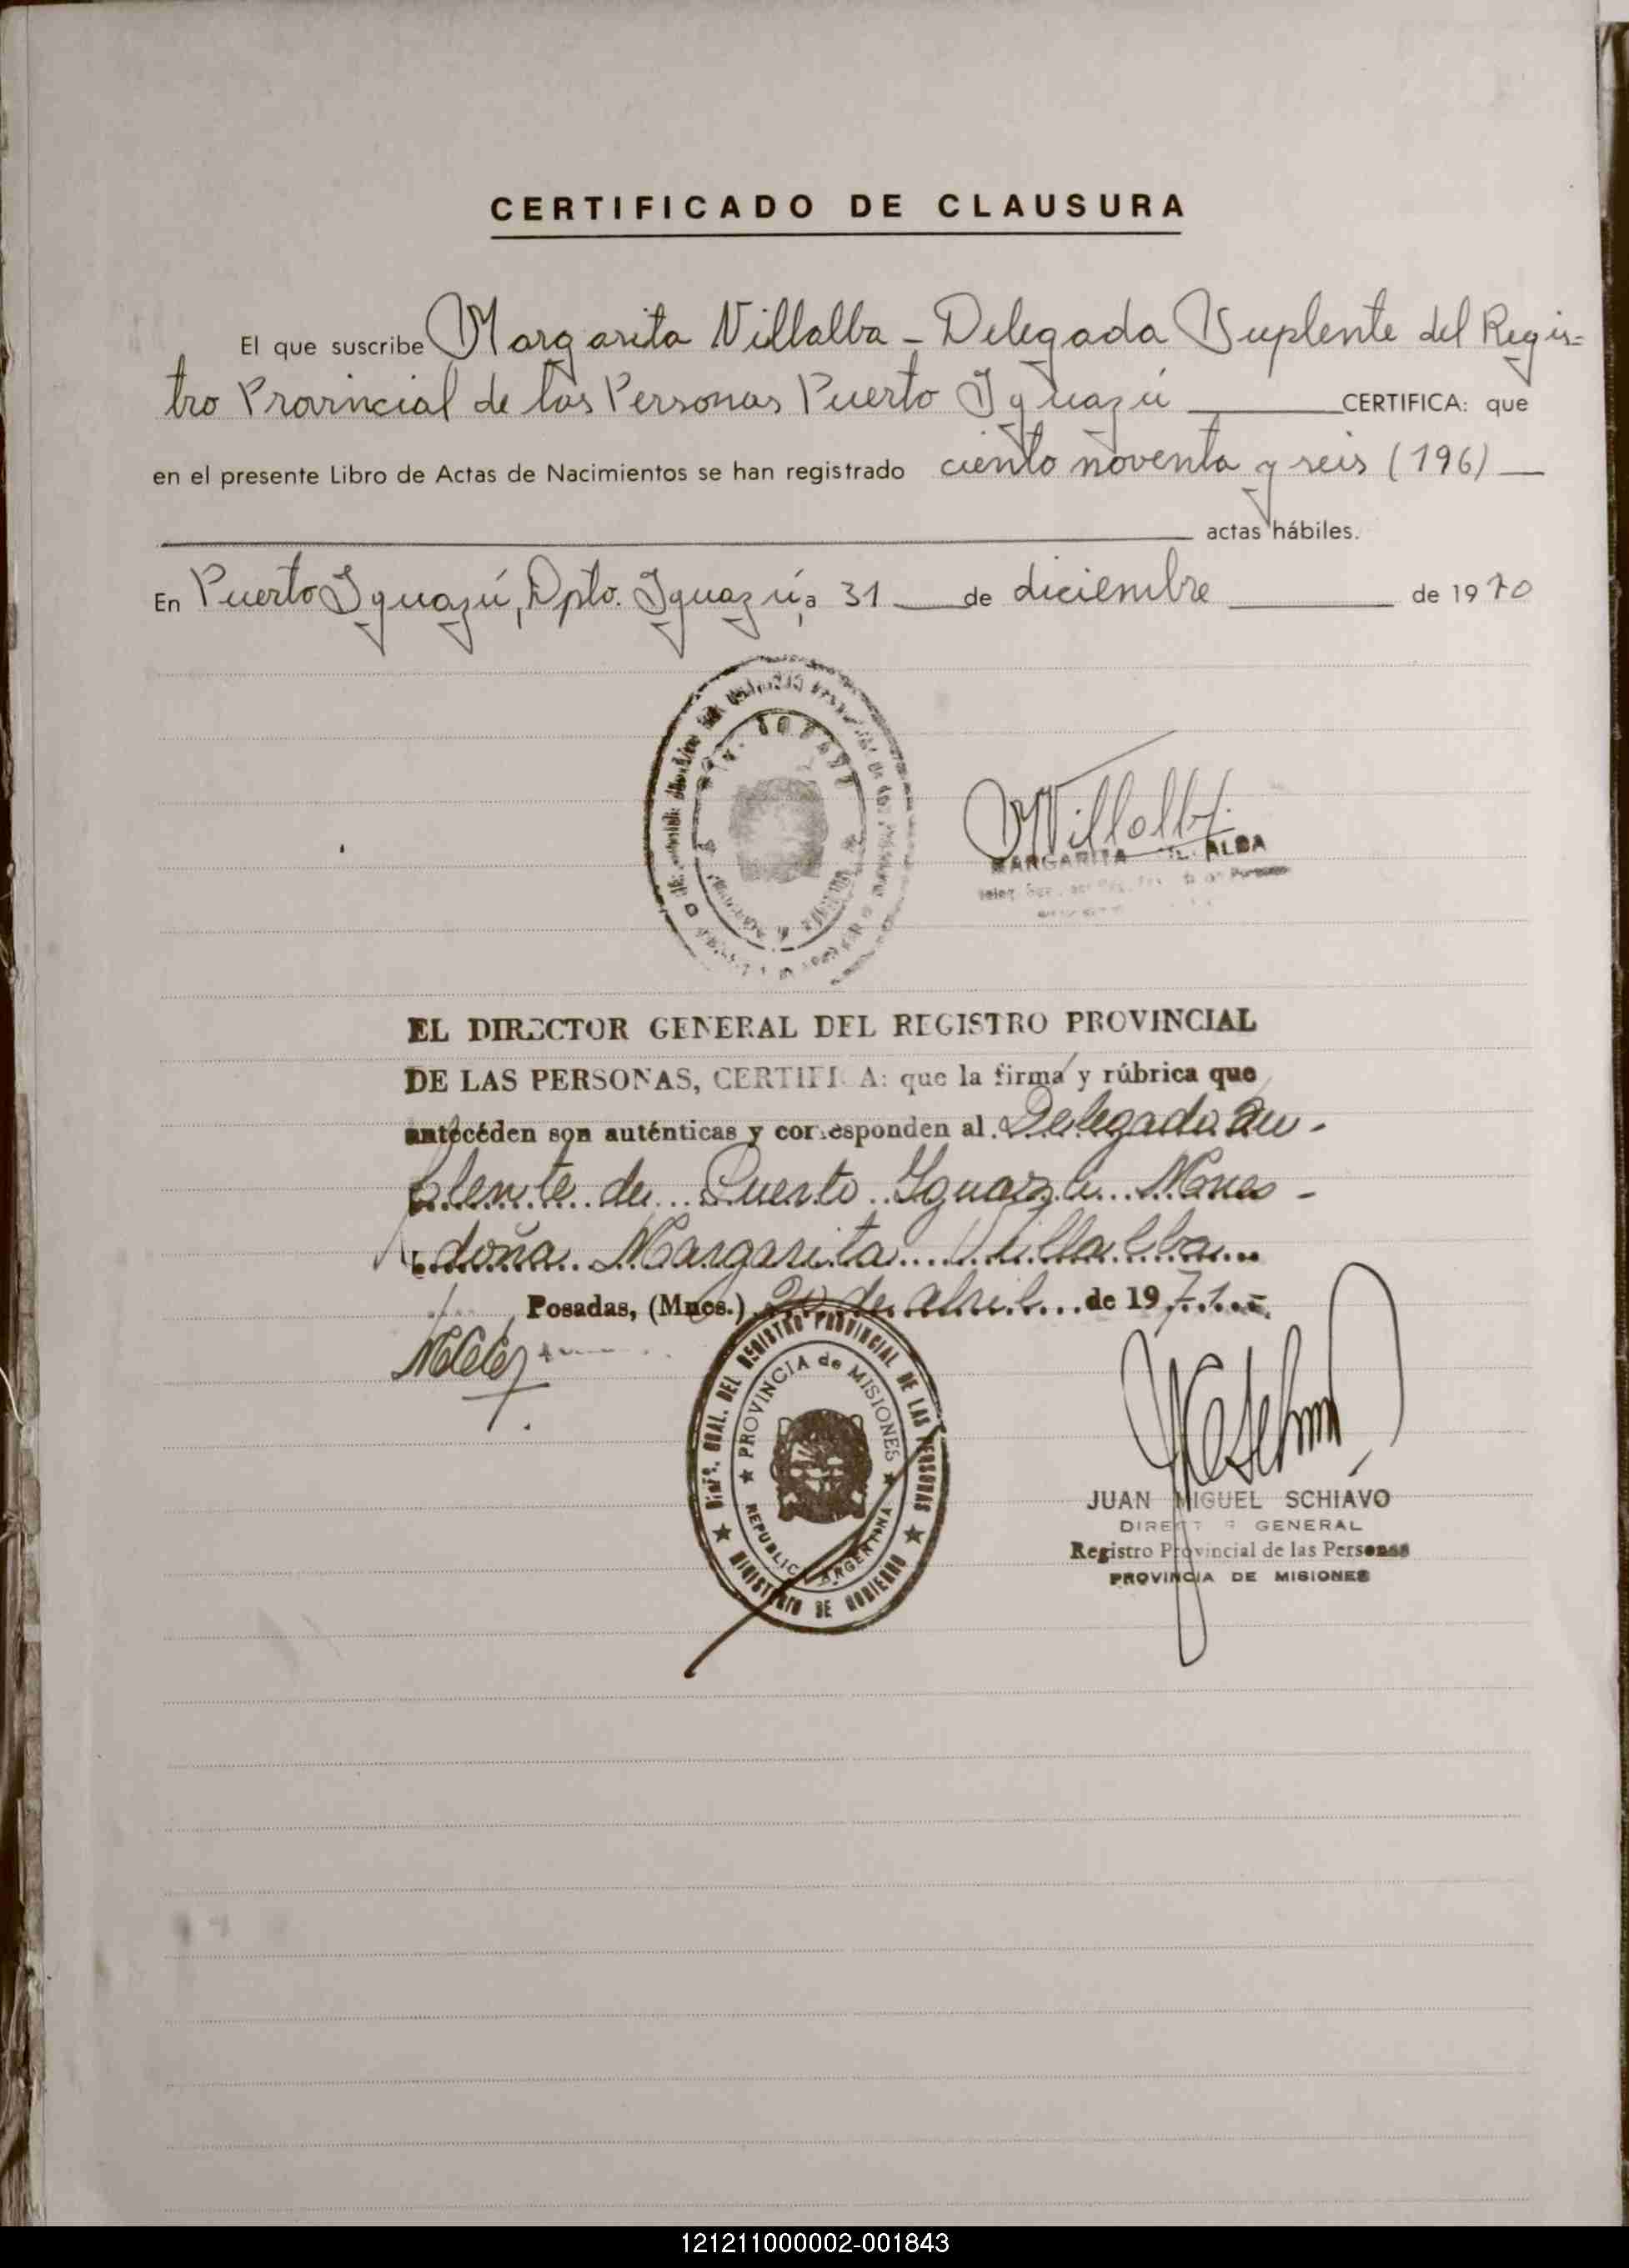 CERTIFICADO DE CLAUSURA
El que suscribe Margarita Villalba - Delegada Suplente del Regis=
tro Provincial de las Personas Puerto Iguazú CERTIFICA: que
en el presente Libro de Actas de Nacimientos se han registrado ciento noventa y seis (196)
actas hábiles.
En Puerto Iguazú, Dpto. Iguazú, a 31 de diciembre de 1970
MVillalba
MARGARITA ALBA
EL DIRECTOR GENERAL DEL REGISTRO PROVINCIAL
DE LAS PERSONAS, CERTIFI A: que la firma y rúbrica que
antecéden son auténticas y corresponden al Delegada Su-
plente de Puerto Iguazú Mnes-
doña Margarita Villalba
Posadas, (Mnes.) 20 de abril de 1971
DIREC. GRAL. DEL REGISTRO PROVINCIAL DE LAS PERSONAS
PROVINCIA de MISIONES
REPUBLICA ARGENTINA
MINISTERIO DE GOBIERNO
JUAN MIGUEL SCHIAVO
DIRECT R GENERAL
Registro Provincial de las Personas
PROVINCIA DE MISIONES
121211000002-001843